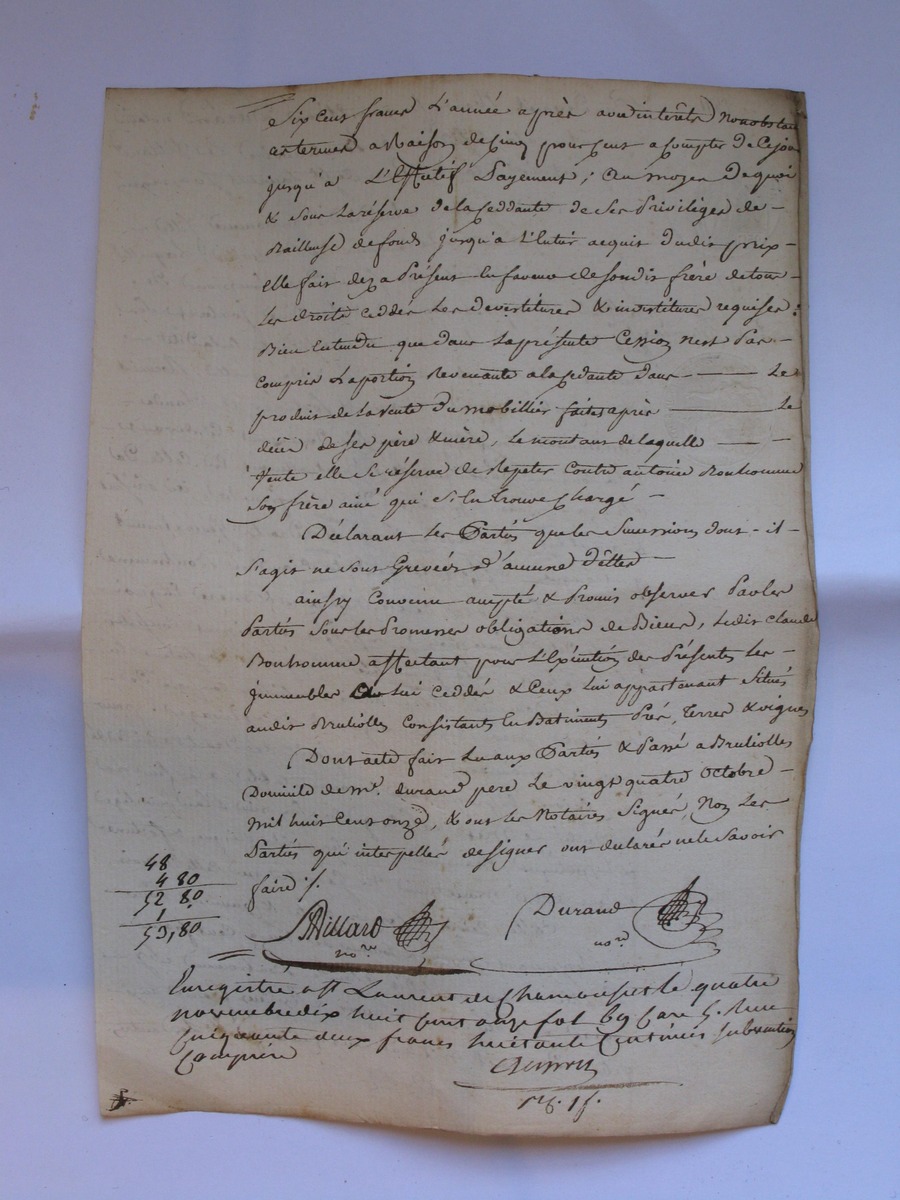 Six cent francs L'année après avec intérêts nonobstant
ces termes a Raison de Cinq pour cent a compter de ce jour
jusqu'a L'Effectif Payement; au moyen de quoi
& sous la réserve de la Ceddante de ses Privilèges de -
Bailleuse de fonds jusqu'a L'Entier acquit dudit prix -
elle fait dez a Présent En faveur de son dit frère de tous -
les droits ceddés Les devestitures & investitures requises:
Bien Entendu que dans la présente Cession n'est Pas -
compris La portion Revenante a la cedante dans - Le
produit de la vente du mobillier faites après - Le
décès de ses père & mère, le montant de laquelle -
Vente elle se réserve de Repeter contre antoine Bonhomme
son frère ainé qui s'en trouve Chargé -
Déclarant les Parties que les Successions dont - il -
s'agit ne sont Grevées d'aucune dettes -
ainsy Convenu accepté & Promis observer Par les
Parties Sous les Promesses obligations de Biens, Ledit Claude
Bonhomme affectant pour L'Exécution des Présentes les -
jmmeubles a lui ceddés & Ceux lui appartenant Situés
audit Brullioles Consistants En Batiments Prés, Terres & vignes
Dont acte fait Lu aux Parties & Passé a Brullioles
Domicile de Mr. durand père Le vingt quatre Octobre -
mil huit Cent onze, & ont les Notaires Signés, Non Les
Parties qui interpellés de signer ont déclarés ne le Savoir
faire ./.
48
4 80
52 80
1
53,80
Durand
nore
nore
Enregistré a St Laurent de Chamousset le quatre
novembre dix huit cent onze fol 69 Case 5. Reçu
Cinquante deux francs huitante Centimes subvention
Comprise